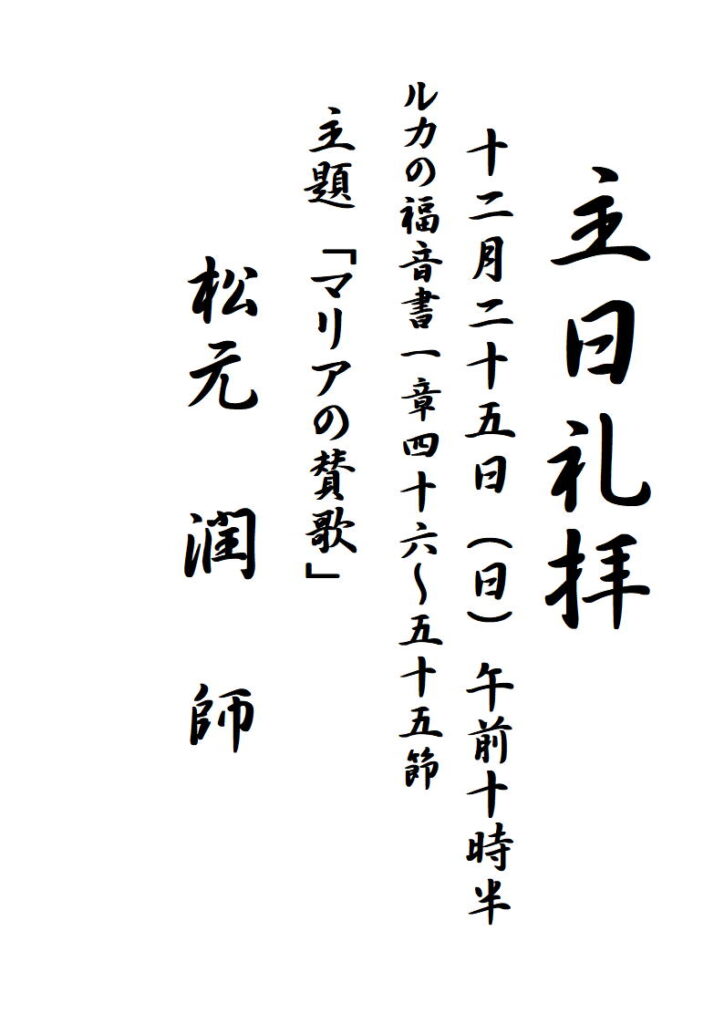 主日礼拝
十二月二十五日（日）午前十時半
ルカの福音書一章四十六～五十五節
主題「マリアの賛歌」
松元　潤　師